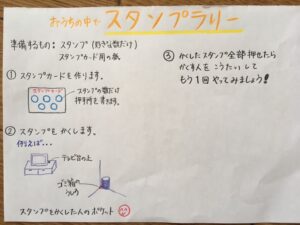 おうちの中で スタンプラリー
準備するもの: スタンプ (好きな数だけ)
スタンプカード用の紙
① スタンプカードを作ります。
スタンプカード
スタンプの数だけ
押す所を書きます。
② スタンプをかくします。
例えば...
テレビ台の上
ゴミ箱の
うしろ
スタンプをかくした人のポケット
③ かくしたスタンプ全部押せたら
かくす人をこうたいして
もう1回やってみましょう!